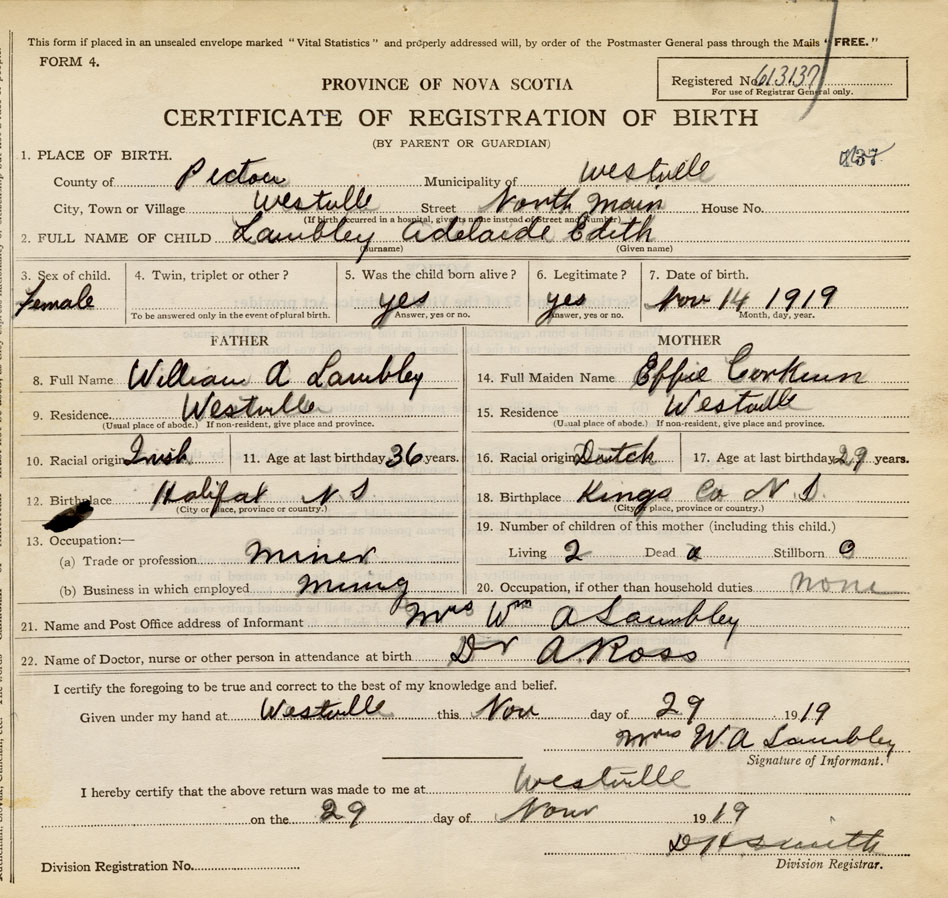 This form if placed in an unsealed envelope marked "Vital Statistics" and properly addressed will, by order of the Postmaster General pass through the Mails "FREE."
FORM 4.
Registered No. 613137
For use of Registrar General only.
PROVINCE OF NOVA SCOTIA
CERTIFICATE OF REGISTRATION OF BIRTH
(BY PARENT OR GUARDIAN)
1. PLACE OF BIRTH.
County of Pictou Municipality of Westville
City, Town or Village Westville Street North Main House No.
(If birth occurred in a hospital, give its name instead of Street and Number)
2. FULL NAME OF CHILD Lambley Adelaide Edith
(Surname) (Given name)
3. Sex of child. 4. Twin, triplet or other? 5. Was the child born alive? 6. Legitimate? 7. Date of birth.
Female yes yes Nov 14 1919
To be answered only in the event of plural birth. Answer, yes or no. Answer, yes or no. Month, day, year.
FATHER MOTHER
8. Full Name William A Lambley 14. Full Maiden Name Effie Corkum
9. Residence Westville 15. Residence Westville
(Usual place of abode.) If non-resident, give place and province. (Usual place of abode.) If non-resident, give place and province.
10. Racial origin Irish 11. Age at last birthday 36 years. 16. Racial origin Dutch 17. Age at last birthday 29 years.
12. Birthplace Halifax N S 18. Birthplace Kings Co N.S.
(City or place, province or country.) (City or place, province or country.)
19. Number of children of this mother (including this child.)
13. Occupation:—
(a) Trade or profession Miner Living 2 Dead Stillborn 0
(b) Business in which employed Mining 20. Occupation, if other than household duties none
21. Name and Post Office address of Informant Mrs Wm A Lambley
22. Name of Doctor, nurse or other person in attendance at birth Dr A. Ross
I certify the foregoing to be true and correct to the best of my knowledge and belief.
Given under my hand at Westville this Nov day of 29 1919
Mrs W A Lambley
Signature of Informant.
I hereby certify that the above return was made to me at Westville
on the 29 day of Nov 1919
D H Smith
Division Registration No. Division Registrar.